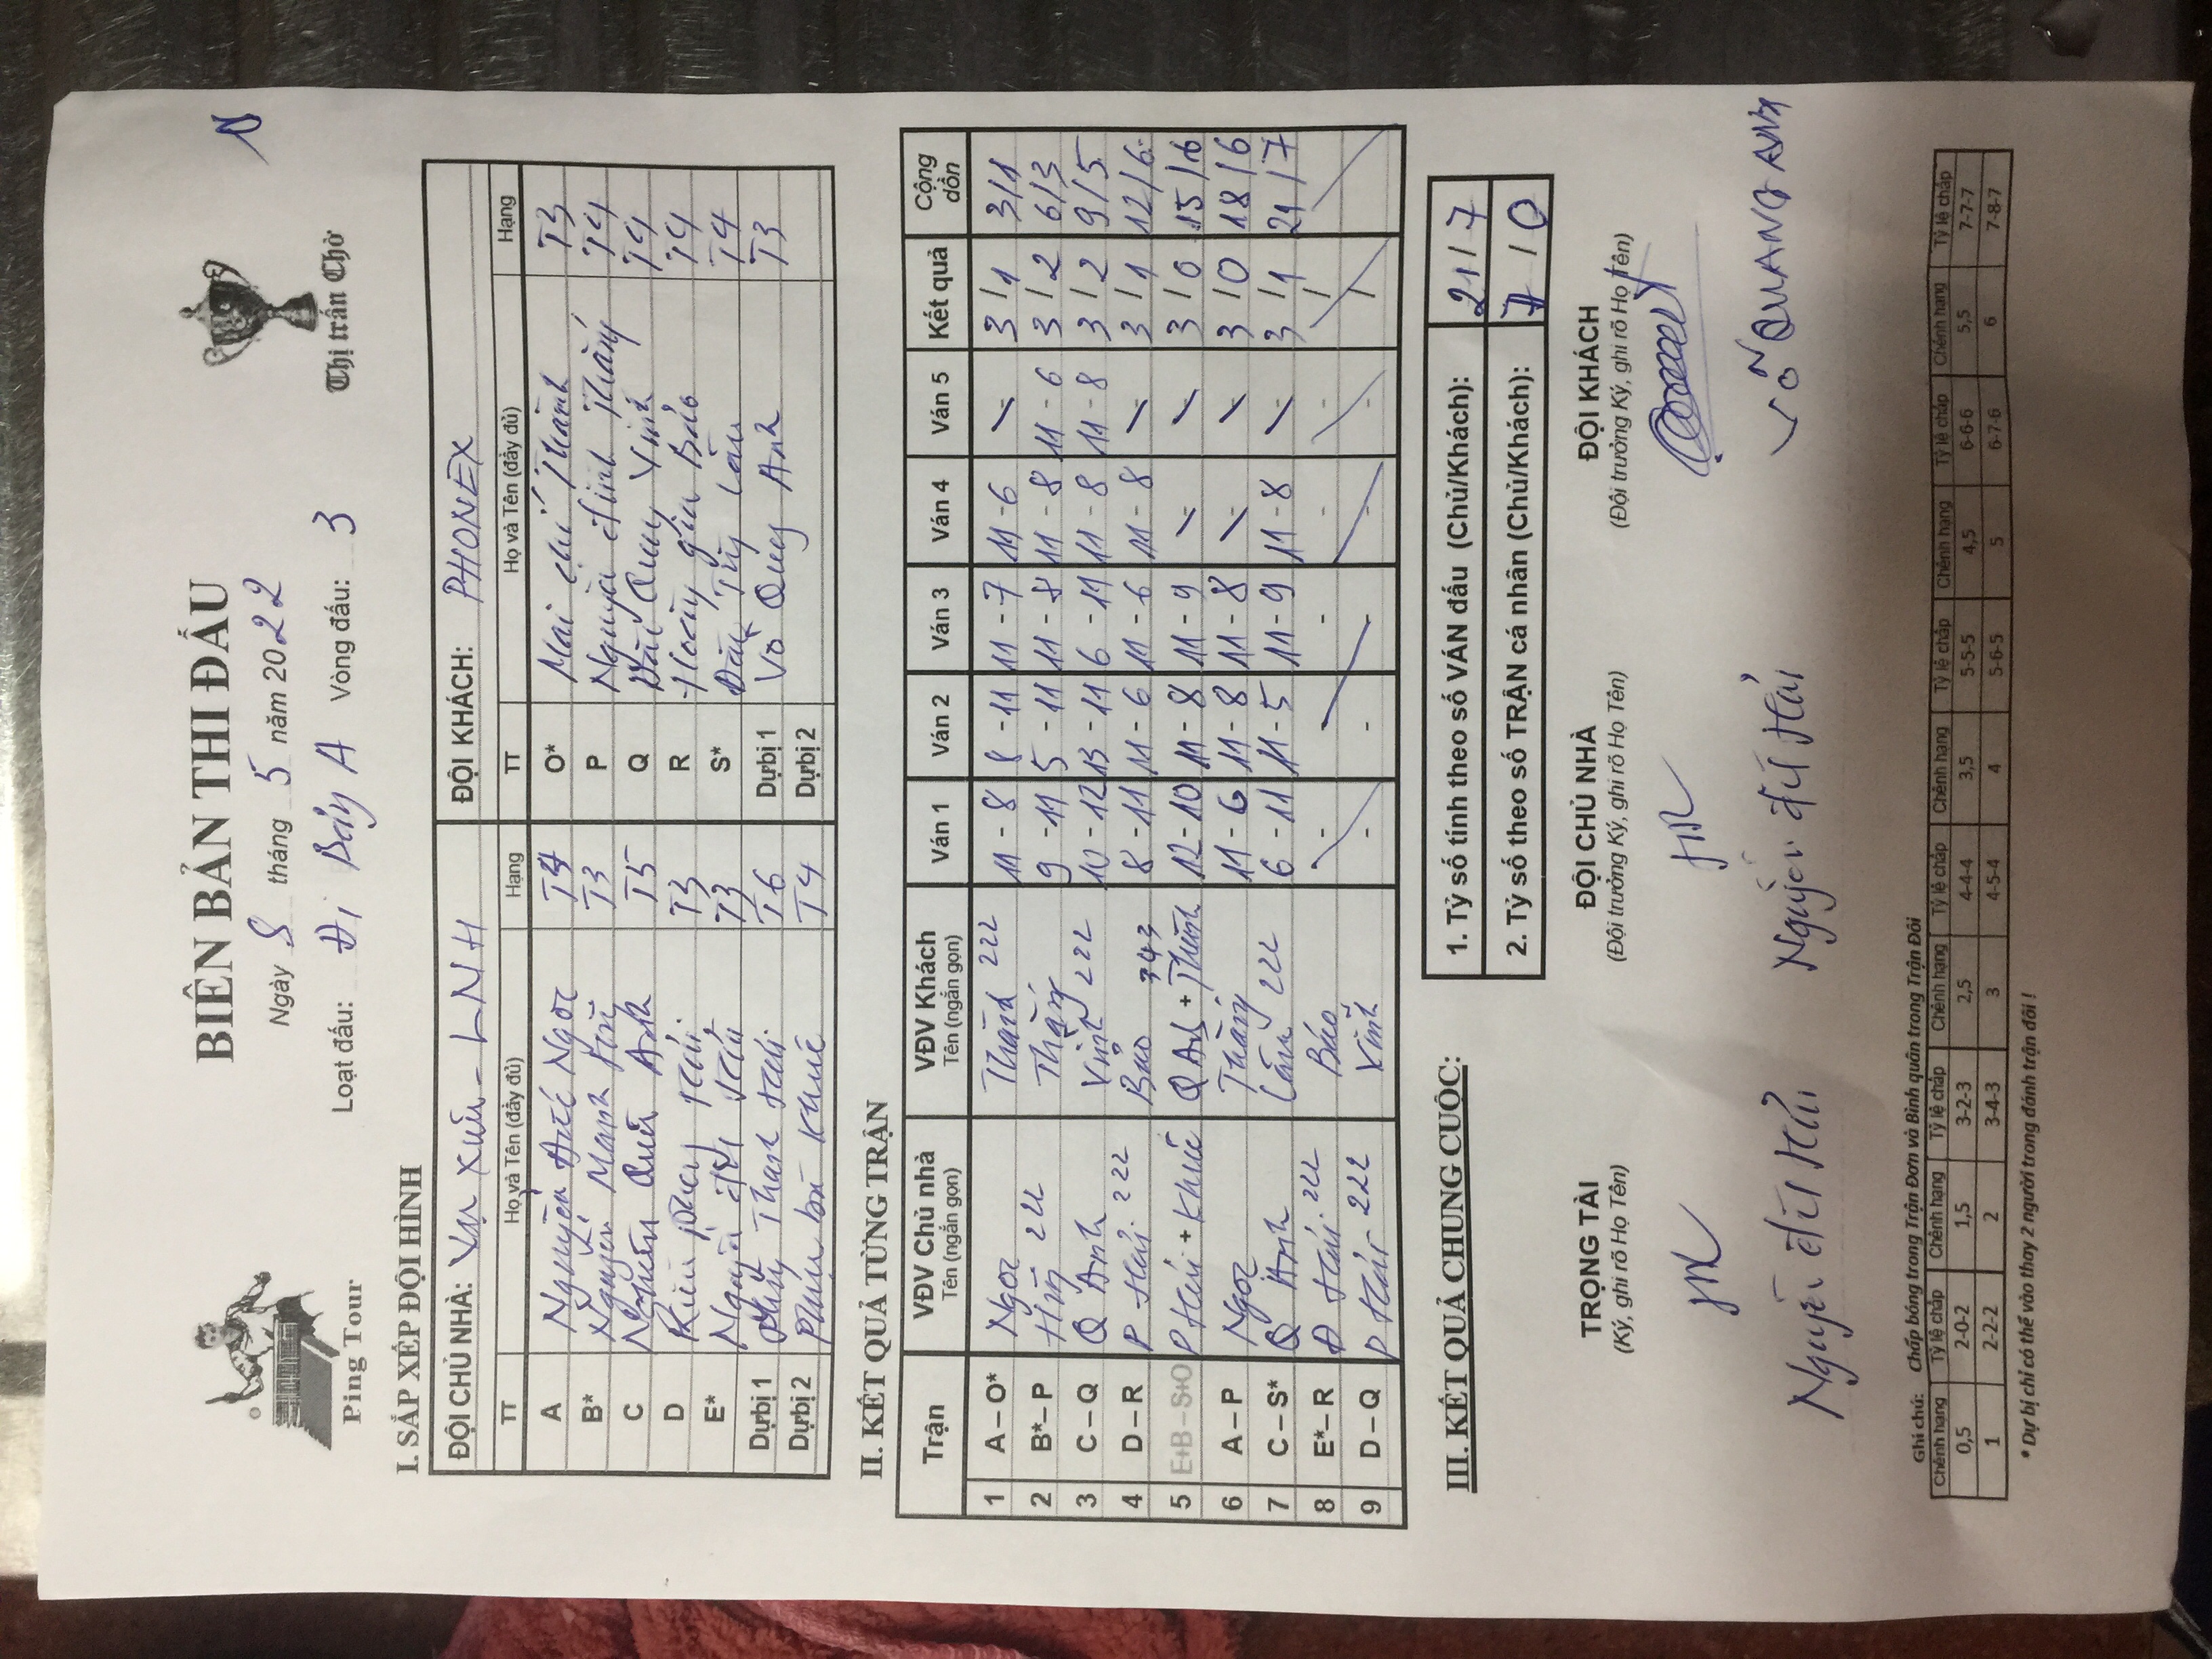 BIÊN BẢN THI ĐẤU
Ngày 8 tháng 5 năm 2022
Ping Tour
Loạt đấu: Hạng A Vòng đấu: 3
Thị trấn Chờ
I. SẮP XẾP ĐỘI HÌNH
ĐỘI CHỦ NHÀ: - LNH ĐỘI KHÁCH: PHONEX
TT Họ và Tên (đầy đủ) Hạng TT Họ và Tên (đầy đủ) Hạng
A Nguyễn Đức Ngọc O* Mai Chí Thành T3
B* Nguyễn Mạnh T3 P Nguyễn Đình Thắng T4
C Quốc Anh T5 Q Quang Vinh T4
D T3 R Hoàng Gia Bảo T4
E* Nguyễn T3 S* Lâm T4
Dự bị 1 Thanh T6 Dự bị 1 Võ Quang Anh T3
Dự bị 2 Khuê T4 Dự bị 2
II. KẾT QUẢ TỪNG TRẬN
Trận VĐV Chủ nhà Tên (ngắn gọn) VĐV Khách Tên (ngắn gọn) Ván 1 Ván 2 Ván 3 Ván 4 Ván 5 Kết quả Cộng dồn
1 A – O* Ngọc Thành 222 11 - 8 8 - 11 11 - 7 11 - 6 - 3 / 1 3/1
2 B* – P 222 Thắng 9 - 11 5 - 11 11 - 8 11 - 8 11 - 6 3 / 2 6/3
3 C – Q Q Anh Vinh 222 10 - 12 13 - 11 6 - 11 11 - 8 11 - 8 3 / 2 9/5
4 D – R P Hải 222 Bảo 8 - 11 11 - 6 11 - 6 11 - 8 - 3 / 1 12/6
5 E+B – S+O P Hải + Khuê Q Anh + Thành 343 12 - 10 11 - 8 11 - 9 - - 3 / 0 15/6
6 A – P Ngọc Thắng 11 - 6 11 - 8 11 - 8 - - 3 / 0 18/6
7 C – S* Q Anh Lâm 222 6 - 11 11 - 5 11 - 9 11 - 8 - 3 / 1 21/7
8 E* – R Đ Hải 222 Bảo - - - - - /
9 D – Q P Hải 222 Vinh - - - - - /
III. KẾT QUẢ CHUNG CUỘC:
1. Tỷ số tính theo số VÁN đấu (Chủ/Khách): 21 / 7
2. Tỷ số theo số TRẬN cá nhân (Chủ/Khách): 7 / 0
TRỌNG TÀI ĐỘI CHỦ NHÀ ĐỘI KHÁCH
(Ký, ghi rõ Họ Tên) (Đội trưởng Ký, ghi rõ Họ Tên) (Đội trưởng Ký, ghi rõ Họ Tên)
Nguyễn Đức Hải Nguyễn Đức Hải VÕ QUANG ANH
Ghi chú: Chấp bóng trong Trận Đơn và Bình quân trong Trận Đôi
Chênh hạng Tỷ lệ chấp Chênh hạng Tỷ lệ chấp Chênh hạng Tỷ lệ chấp Chênh hạng Tỷ lệ chấp Chênh hạng Tỷ lệ chấp Chênh hạng Tỷ lệ chấp
0,5 2-0-2 1,5 3-2-3 2,5 4-4-4 3,5 5-5-5 4,5 6-6-6 5,5 7-7-7
1 2-2-2 2 3-4-3 3 4-5-4 4 5-6-5 5 6-7-6 6 7-8-7
* Dự bị chỉ có thể vào thay 2 người trong đánh trận đôi !